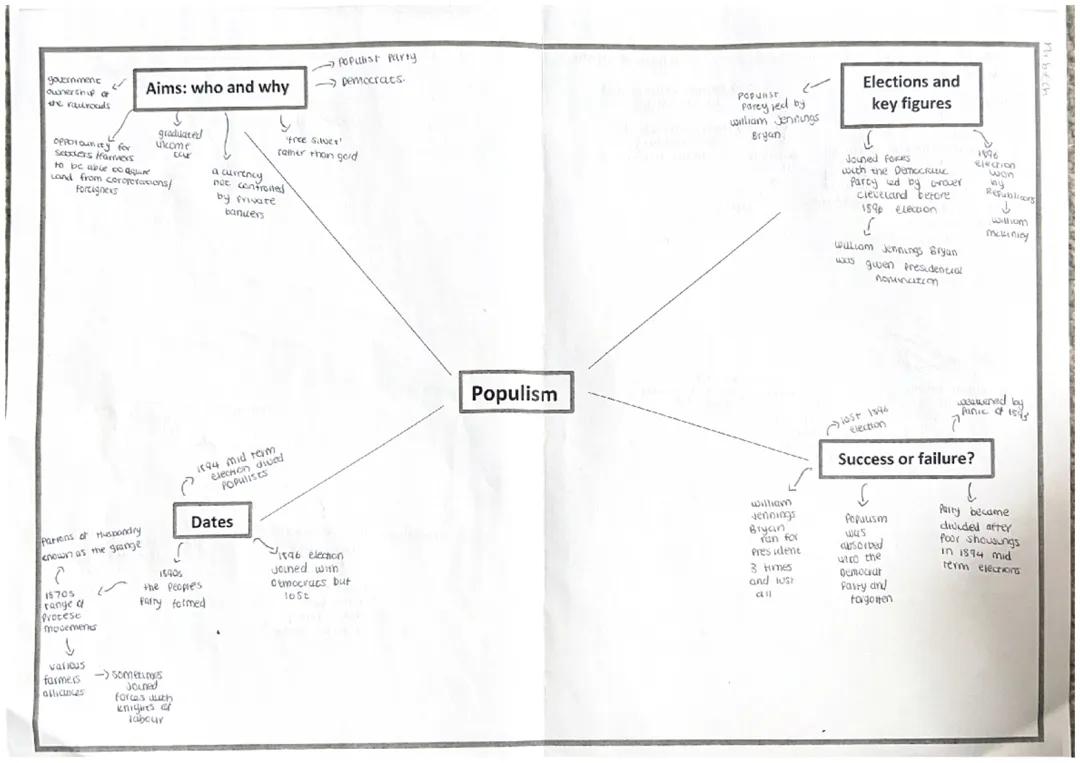 Aims: who and why
→ Populist Party
→ Democrats.
government
ownership of
the railroads
opportunity for
settlers farmers
to be able to aquire
land from coroporations/
foreigners
graduated
income
tax
a currency
not controlled
by private
bankers
'free silver'
rather than gold
Elections and
key figures
Populist
Party led by
William Jennings
Bryan
Joined forces
with the Democratic
Party led by Grover
Cleveland before
1896 election
William Jennings Bryan
was given Presidential
nomination
1896
election
won
by
Republicans
William
McKinley
Populism
Dates
1894 mid term
election divided
populists
1890s
the Peoples
Party formed
1896 election
joined with
Democrats but
lost
1870s
range of
protest
movements
Patrons of Husbandry
known as the Grange
various
farmers
alliances
→ sometimes
joined
forces with
knights of
labour
Success or failure?
lost 1896
election
weakened by
Panic of 1893
William
Jennings
Bryan
ran for
President
3 times
and lost
all
Populism
was
absorbed
into the
Democrat
Party and
forgotten
Party became
divided after
poor showings
in 1894 mid
term elections